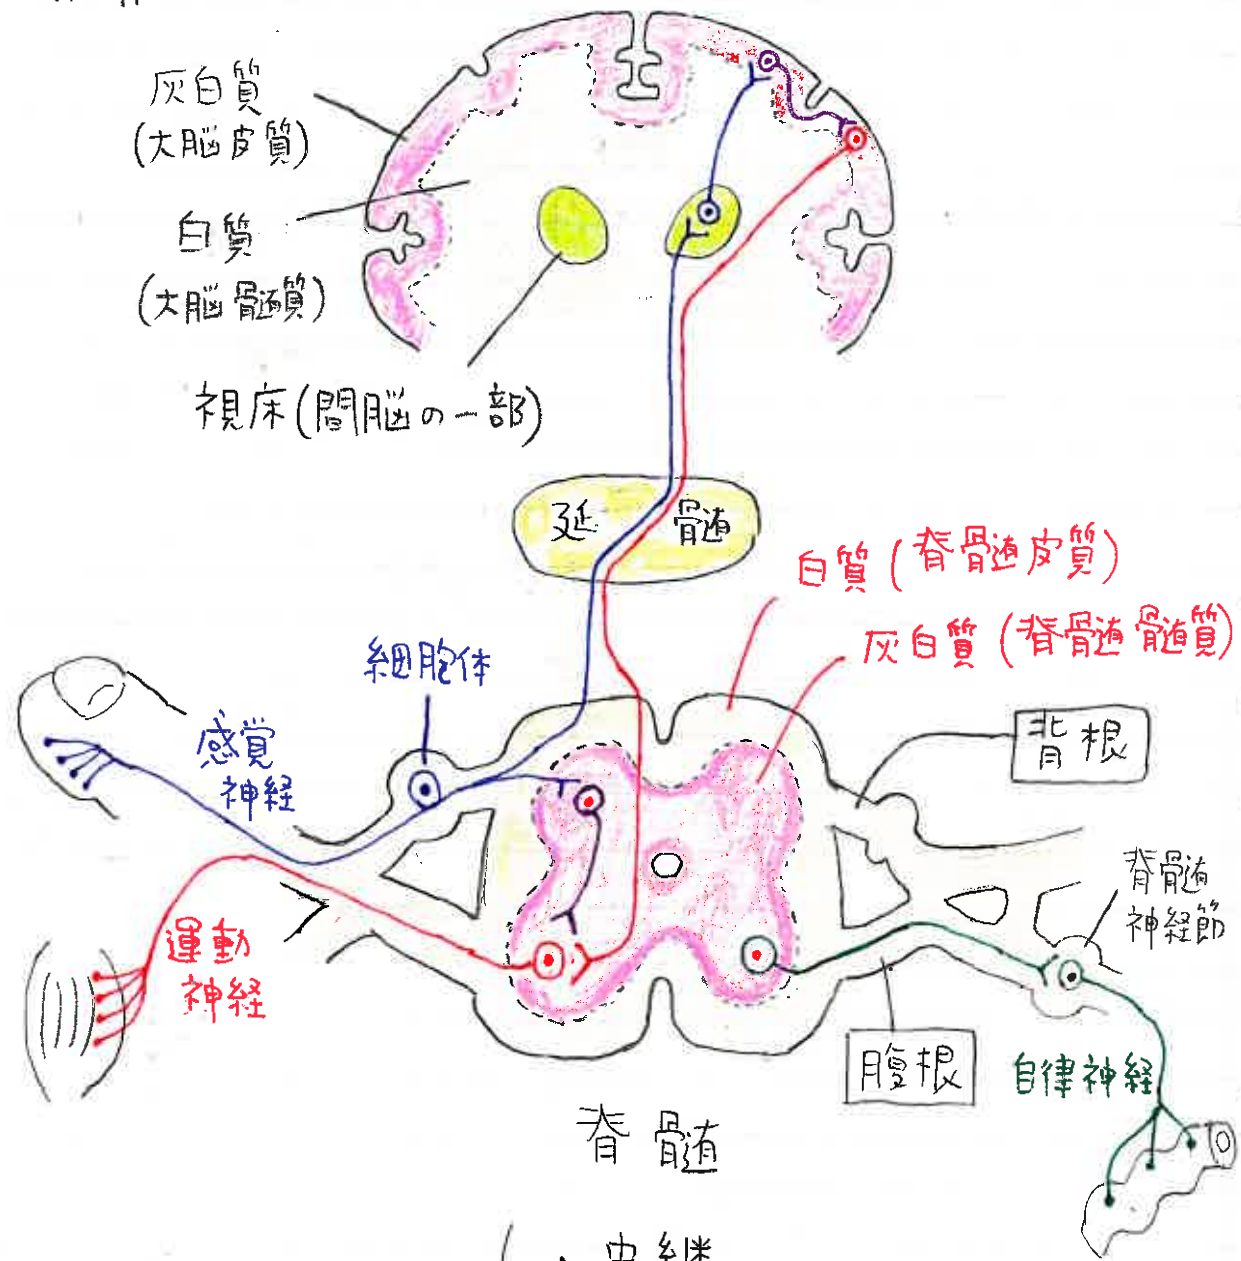 灰白質
(大脳皮質)
白質
(大脳髄質)
視床(間脳の一部)
延 髄
白質(脊髄皮質)
灰白質(脊髄髄質)
細胞体
感覚
神経
背根
脊髄
神経節
運動
神経
腹根
自律神経
脊髄
中継